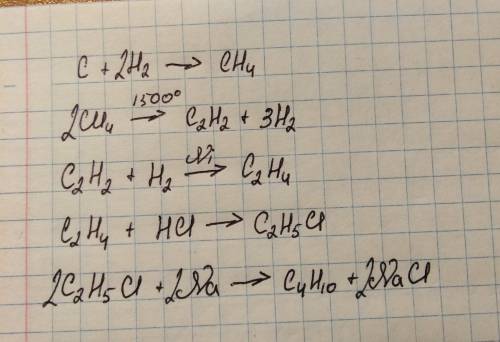 C + 2H2 → CH4
2CH4 1500° → C2H2 + 3H2
C2H2 + H2 Ni → C2H4
C2H4 + HCl → C2H5Cl
2C2H5Cl + 2Na → C4H10 + 2NaCl